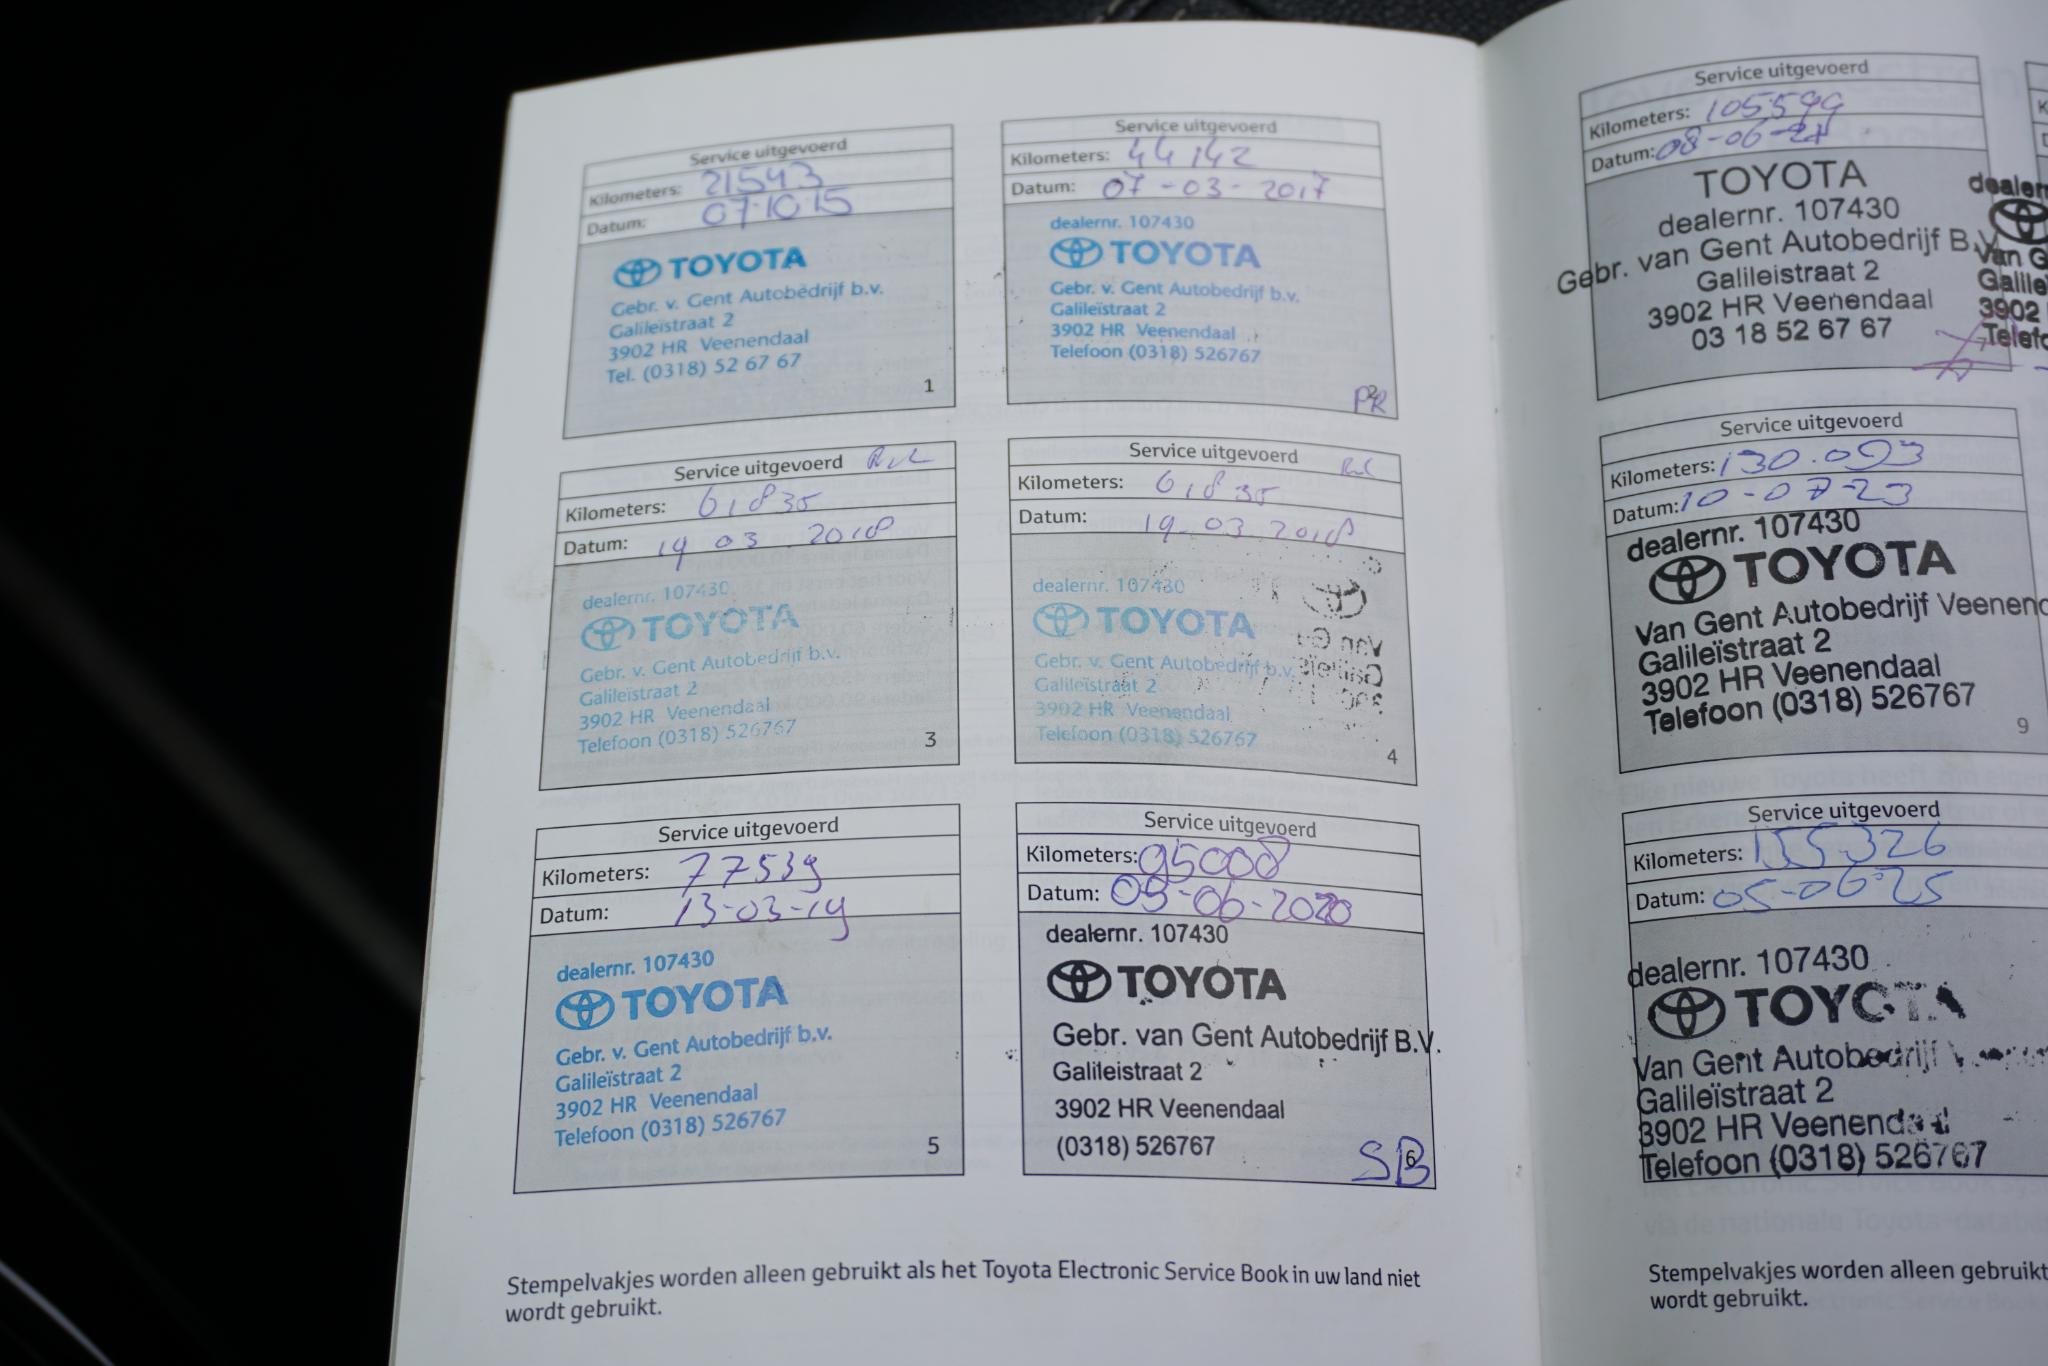 Service uitgevoerd
Kilometers: 21543
Datum: 07-10-15
TOYOTA
Gebr. v. Gent Autobedrijf b.v.
Galileïstraat 2
3902 HR Veenendaal
Tel. (0318) 52 67 67
1
Service uitgevoerd
Kilometers: 44142
Datum: 07-03-2017
dealernr. 107430
TOYOTA
Gebr. v. Gent Autobedrijf b.v.
Galileïstraat 2
3902 HR Veenendaal
Telefoon (0318) 526767
PR
Service uitgevoerd
Kilometers: 61835
Datum: 19 03 2018
dealernr. 107430
TOYOTA
Gebr. v. Gent Autobedrijf b.v.
Galileïstraat 2
3902 HR Veenendaal
Telefoon (0318) 526767
3
Service uitgevoerd
Kilometers: 61835
Datum: 19-03 2018
dealernr. 107430
TOYOTA
Gebr. v. Gent Autobedrijf b.v.
Galileïstraat 2
3902 HR Veenendaal
Telefoon (0318) 526767
4
Service uitgevoerd
Kilometers: 77539
Datum: 13-03-19
dealernr. 107430
TOYOTA
Gebr. v. Gent Autobedrijf b.v.
Galileïstraat 2
3902 HR Veenendaal
Telefoon (0318) 526767
5
Service uitgevoerd
Kilometers: 95008
Datum: 05-06-2020
dealernr. 107430
TOYOTA
Gebr. van Gent Autobedrijf B.V.
Galileistraat 2
3902 HR Veenendaal
(0318) 526767
SB 6
Stempelvakjes worden alleen gebruikt als het Toyota Electronic Service Book in uw land niet
wordt gebruikt.
Service uitgevoerd
Kilometers: 105599
Datum: 08-06-21
TOYOTA
dealernr. 107430
Gebr. van Gent Autobedrijf B.V.
Galileistraat 2
3902 HR Veenendaal
03 18 52 67 67
Service uitgevoerd
Kilometers: 130.093
Datum: 10-07-23
dealernr. 107430
TOYOTA
Van Gent Autobedrijf Veenend
Galileïstraat 2
3902 HR Veenendaal
Telefoon (0318) 526767
9
Service uitgevoerd
Kilometers: 155326
Datum: 05-06-25
dealernr. 107430
TOYOTA
Van Gent Autobedrijf
Galileïstraat 2
3902 HR Veenendaal
Telefoon (0318) 526767
Stempelvakjes worden alleen gebruikt
wordt gebruikt.